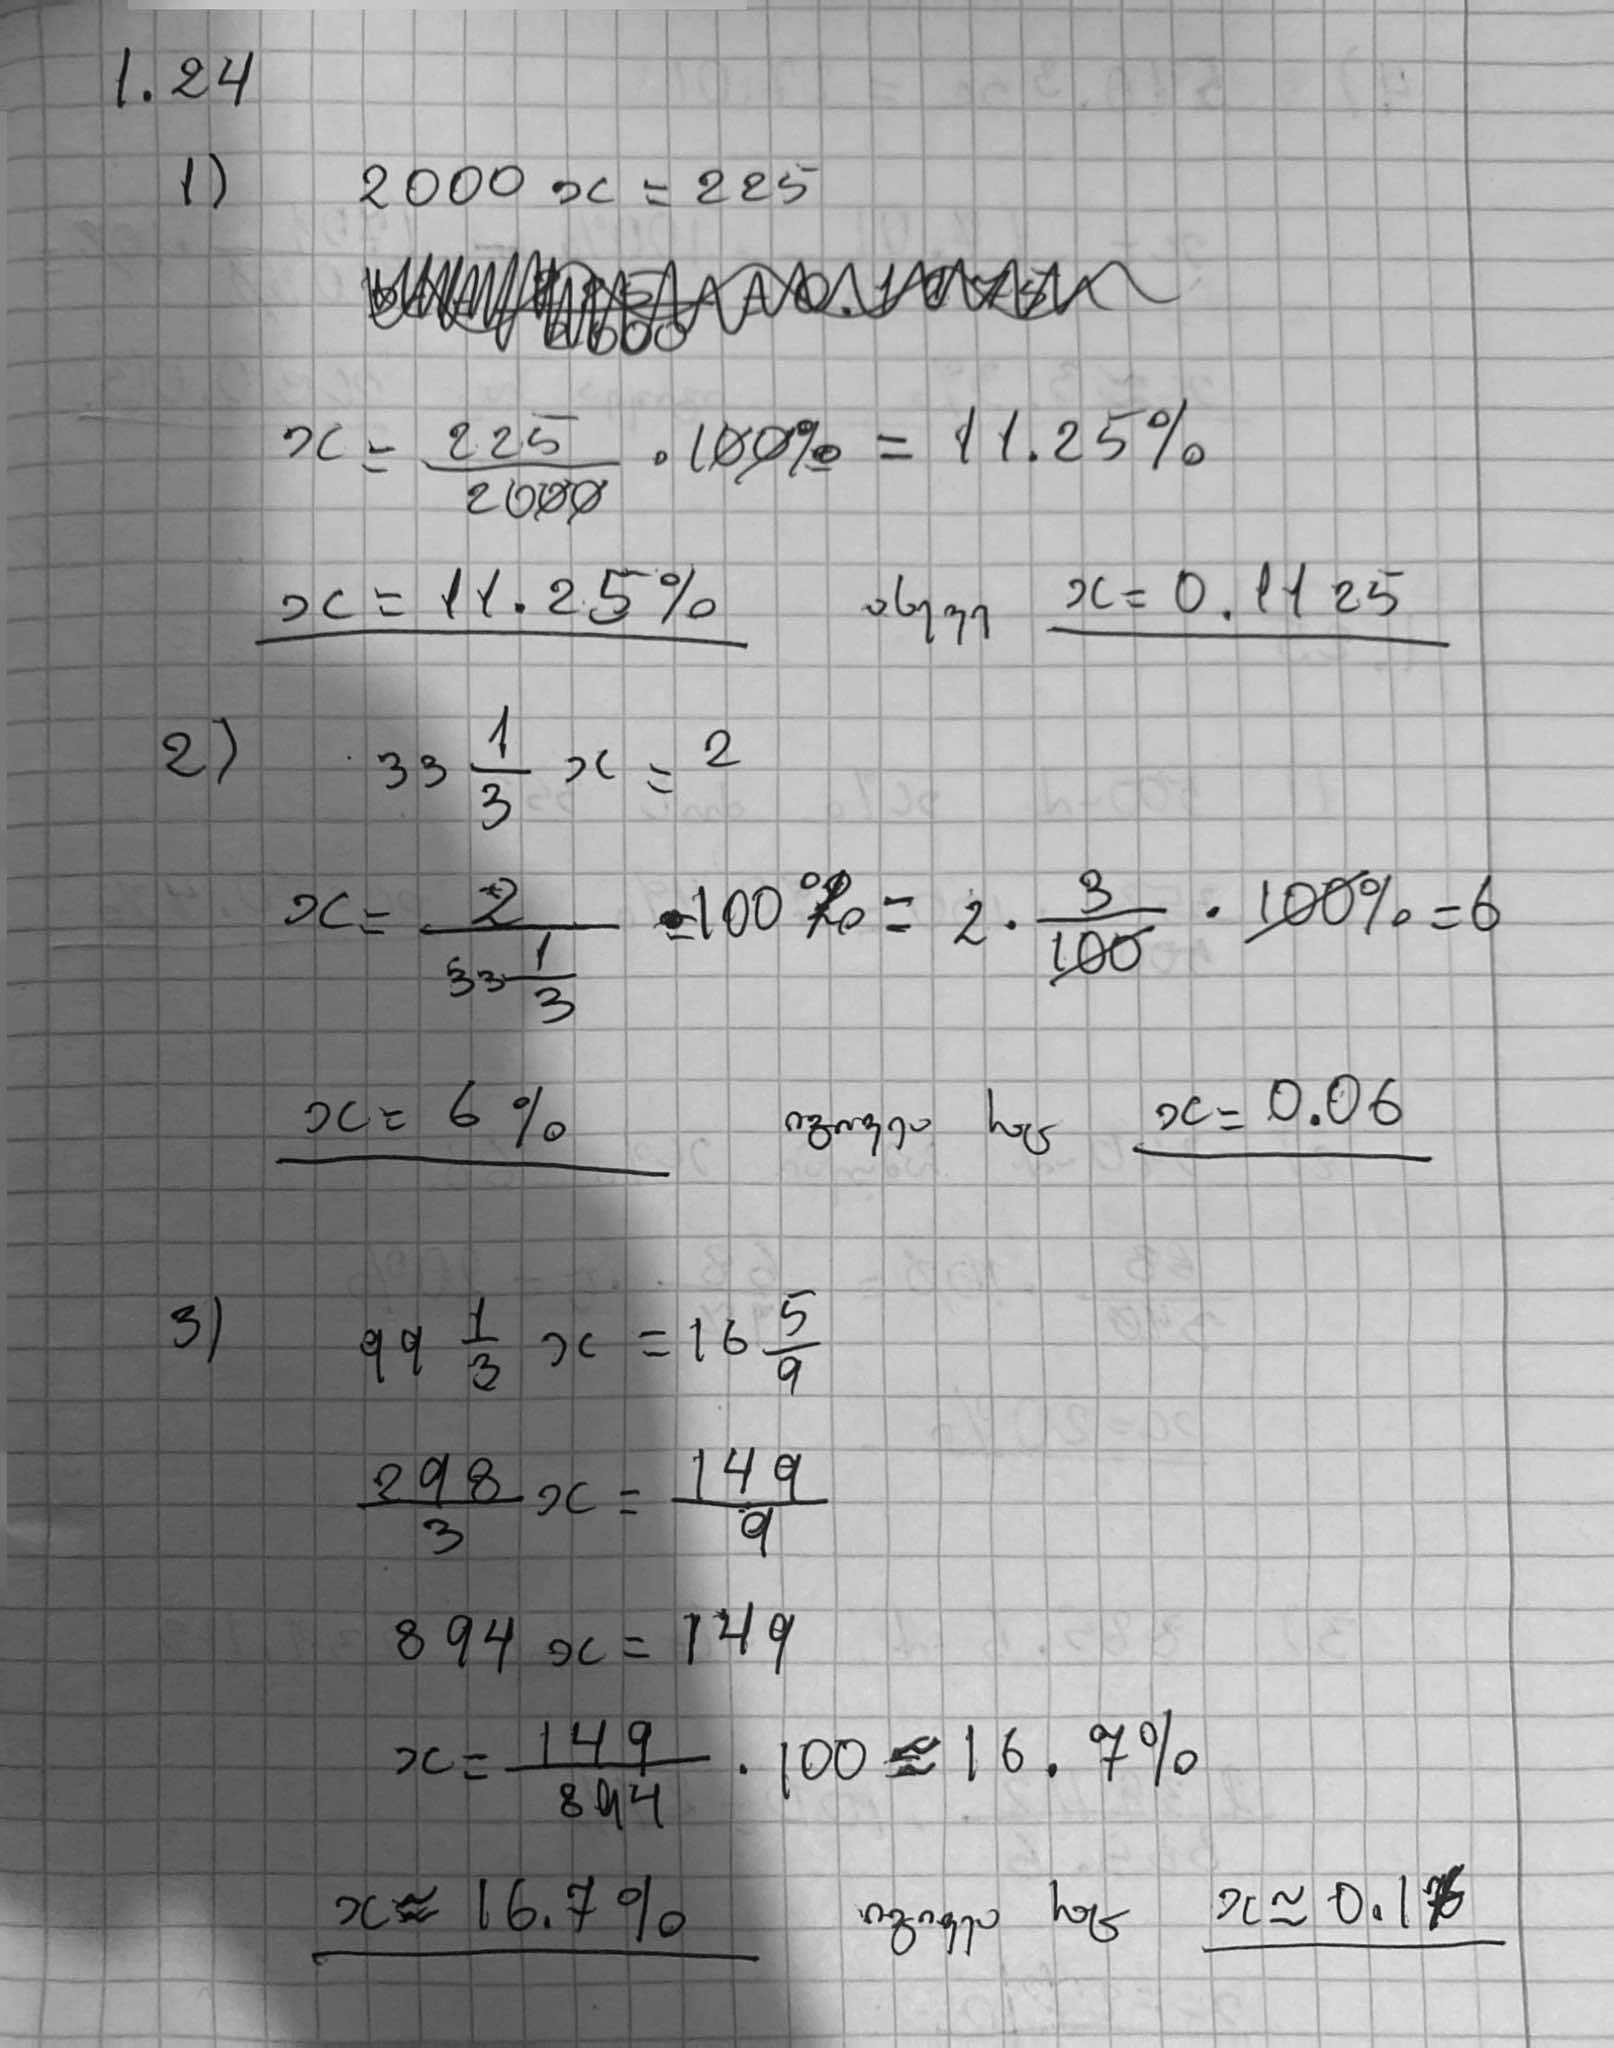 1.24
1) 2000 x = 225
x = 225/2000 · 100% = 11.25%
x = 11.25% x = 0.1125
2) 33 1/3 x = 2
x = 2/(33 1/3) · 100% = 2 · 3/100 · 100% = 6
x = 6% x = 0.06
3) 99 1/3 x = 16 5/9
298/3 x = 149/9
894 x = 149
x = 149/894 · 100 ≈ 16.7%
x ≈ 16.7% x ≈ 0.17